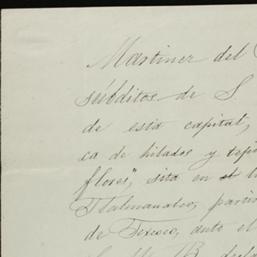 Martinez del
súbditos de S.
de esta capital,
ca de hilados y teji
flores", sita en el
Tlalmanalco, partid
de Texcoco, ante el